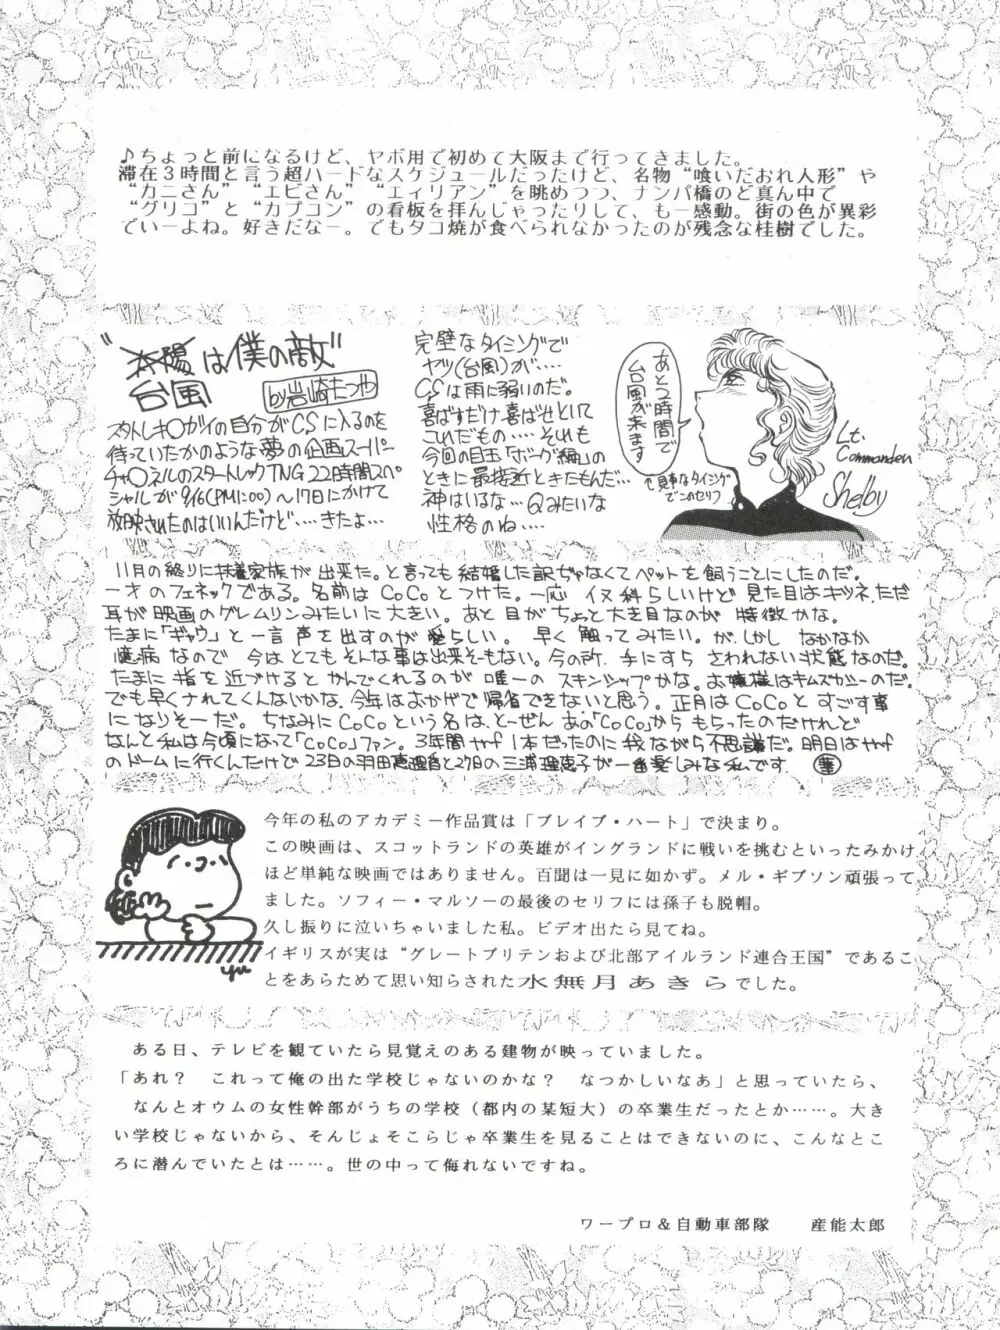 ♪ちょっと前になるけど、ヤボ用で初めて大阪まで行ってきました。
滞在3時間と言う超ハードなスケジュールだったけど、名物“喰いだおれ人形”や
“カニさん”“エビさん”“エィリアン”を眺めつつ、ナンパ橋のど真ん中で
“グリコ”と“カプコン”の看板を拝んじゃったりして、も一感動。街の色が異彩
でいーよね。好きだなー。でもタコ焼が食べられなかったのが残念な桂樹でした。
“太陽は僕の敵”
台風
by岩崎たつや
スタトレキ〇ガイの自分がCSに入るのを
待っていたかのような夢の企画スーパー
チャ〇ネルのスタートレックTNG 22時間スペ
シャルが9/16(PM1:00)～17日にかけて
放映されたのはいいんだけど‥‥きたよ…
完璧なタイミングで
ヤツ(台風)が‥‥
CSは雨に弱いのだ。
喜ばすだけ喜ばせといて
これだもの‥‥それも
今回の目玉「ボーグ編」の
ときに最接近ときたもんだ…
神はいるな…Qみたいな
性格のね‥‥
あと2時間で
台風が来ます
↑見事なタイミング
でこのセリフ
Lt.
Commander
Shelby
11月の終りに扶養家族が出来た。と言っても結婚した訳ぢゃなくてペットを飼うことにしたのだ。
一才のフェネックである。名前はCoCoとつけた。一応イヌ科らしいけど見た目はキツネ、ただ
耳が映画のグレムリンみたいに大きい。あと目がちょっと大き目なのが特徴かな。
たまに「ギャウ」と一言声を出すのが愛らしい。早く触ってみたい。が、しかしなかなか
臆病なので今はとてもそんな事は出来そーもない。今の所、手にすらさわれない状態なのだ。
たまに指を近づけるとかんでくれるのが唯一のスキンシップかな。お嬢様はキムズかしーのだ。
でも早くナれてくんないかな。今年はおかげで帰省できないと思う。正月はCoCoとすごす事
になりそーだ。ちなみにCoCoという名は、とーぜんあの「CoCo」からもらったのだけれど
なんと私は今頃になって「CoCo」ファン。3年間ヤf1本だったのに我ながら不思議だ。明日はヤf
のドームに行くんだけど23日の羽田恵理香と27日の三浦理恵子が一番楽しみな私です 華
今年の私のアカデミー作品賞は「ブレイブ・ハート」で決まり。
この映画は、スコットランドの英雄がイングランドに戦いを挑むといったみかけ
ほど単純な映画ではありません。百聞は一見に如かず。メル・ギブソン頑張って
ました。ソフィー・マルソーの最後のセリフには孫子も脱帽。
久し振りに泣いちゃいました私。ビデオ出たら見てね。
イギリスが実は“グレートブリテンおよび北部アイルランド連合王国”であるこ
とをあらためて思い知らされた水無月あきらでした。
yu
ある日、テレビを観ていたら見覚えのある建物が映っていました。
「あれ？　これって俺の出た学校じゃないのかな？　なつかしいなあ」と思っていたら、
なんとオウムの女性幹部がうちの学校（都内の某短大）の卒業生だったとか……。大き
い学校じゃないから、そんじょそこらじゃ卒業生を見ることはできないのに、こんなとこ
ろに潜んでいたとは……。世の中って侮れないですね。
ワープロ＆自動車部隊　　産能太郎